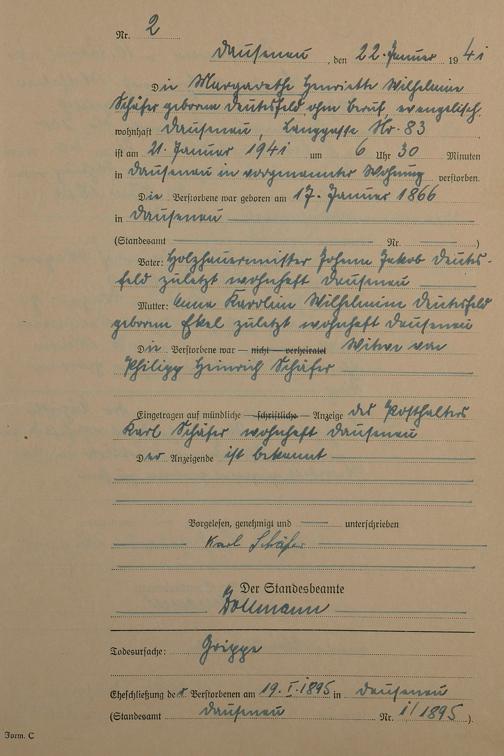 Nr. 2
Dausenau, den 22. Januar 1941
Die Margarethe Henriette Wilhelmine
Schäfer geborene Deutesfeld, ohne Beruf, evangelisch,
wohnhaft Dausenau, Langgasse Nr. 83
ist am 21. Januar 1941 um 6 Uhr 30 Minuten
in Dausenau in vorgenannter Wohnung verstorben.
Die Verstorbene war geboren am 17. Januar 1866
in Dausenau
(Standesamt Nr. )
Vater: Holzhauermeister Johann Jakob Deutes-
feld zuletzt wohnhaft Dausenau
Mutter: Anna Karoline Wilhelmine Deutesfeld
geborene Ekel zuletzt wohnhaft Dausenau
Die Verstorbene war nicht verheiratet Witwe von
Philipp Heinrich Schäfer
Eingetragen auf mündliche schriftliche Anzeige des Posthalters
Karl Schäfer wohnhaft Dausenau
Der Anzeigende ist bekannt
Vorgelesen, genehmigt und unterschrieben
Karl Schäfer
Der Standesbeamte
Todesursache: Grippe
Eheschließung der Verstorbenen am 19. I. 1895 in Dausenau
(Standesamt Dausenau Nr. 1/1895).
Form. C